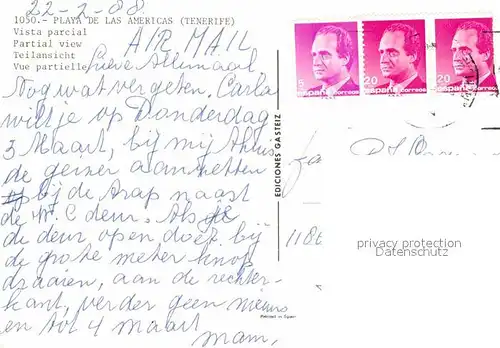 22-2-88
1050.- PLAYA DE LAS AMERICAS (TENERIFE)
Vista parcial
Partial view
Teilansicht
Vue partielle
AIR MAIL
Lieve Allemaal
Nog wat vergeten, Carla
wil je op Donderdag
3 Maart, bij mij thuis
de geizer aanzetten
bij de trap naast
de W.C deur. Als je
de deur open doet bij
de grote meter knop
draaien, aan de rechter-
kant, verder geen nieuws
en tot 4 maart
mam,
EDICIONES GASTEIZ
5
españa correos
20
españa correos
20
españa correos
118
privacy protection
Datenschutz